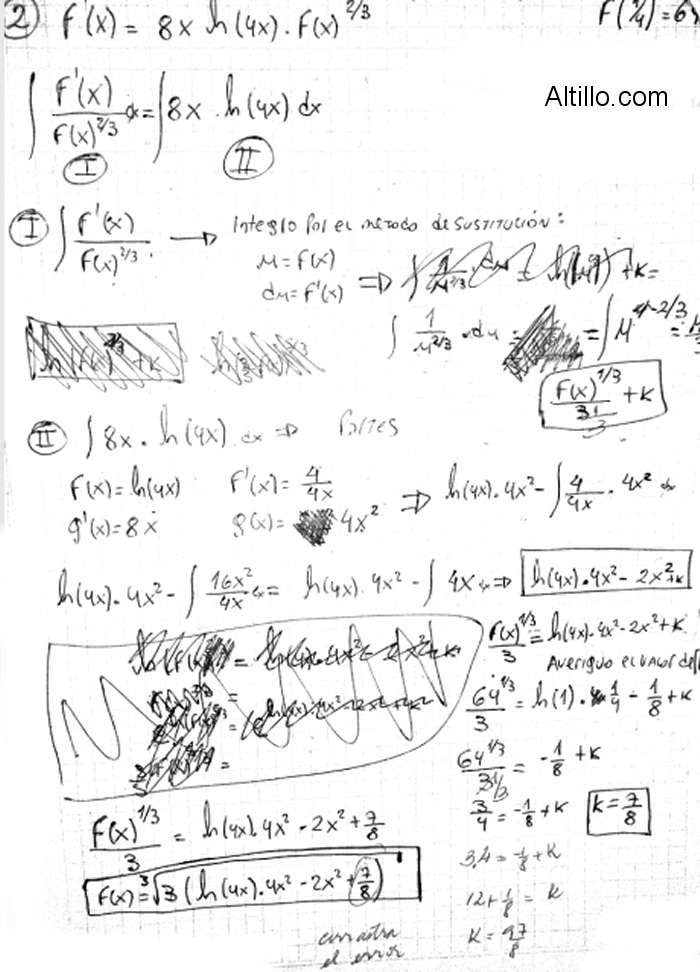 2) F'(x) = 8x ln(4x) · F(x)^2/3
F(1/4) = 64
Altillo.com
∫ F'(x)/F(x)^2/3 dx = ∫ 8x · ln(4x) dx
I II
I ∫ F'(x)/F(x)^2/3 → Integro por el metodo de sustitución:
u = F(x)
du = F'(x) ⇒
∫ 1/u^2/3 · du = = ∫ u^-2/3 =
F(x)^1/3 / 1/3 + K
II ∫ 8x · ln(4x) dx ⇒ Partes
F(x) = ln(4x) F'(x) = 4/4x
g'(x) = 8x g(x) = 4x² ⇒ ln(4x) · 4x² - ∫ 4/4x · 4x² dx
ln(4x) · 4x² - ∫ 16x²/4x dx = ln(4x) · 4x² - ∫ 4x dx ⇒ ln(4x) · 4x² - 2x² + K
F(x)^1/3 / 3 = ln(4x) · 4x² - 2x² + K
Averiguo el valor de
64^1/3 / 3 = ln(1) · 1/4 - 1/8 + K
64^1/3 / 1/3 = -1/8 + K
3/4 = -1/8 + K K = 7/8
3.4 = -1/8 + K
12 + 1/8 = K
K = 97/8
F(x)^1/3 / 3 = ln(4x) · 4x² - 2x² + 7/8
F(x) = ³√3 (ln(4x) · 4x² - 2x² + 7/8)
el error